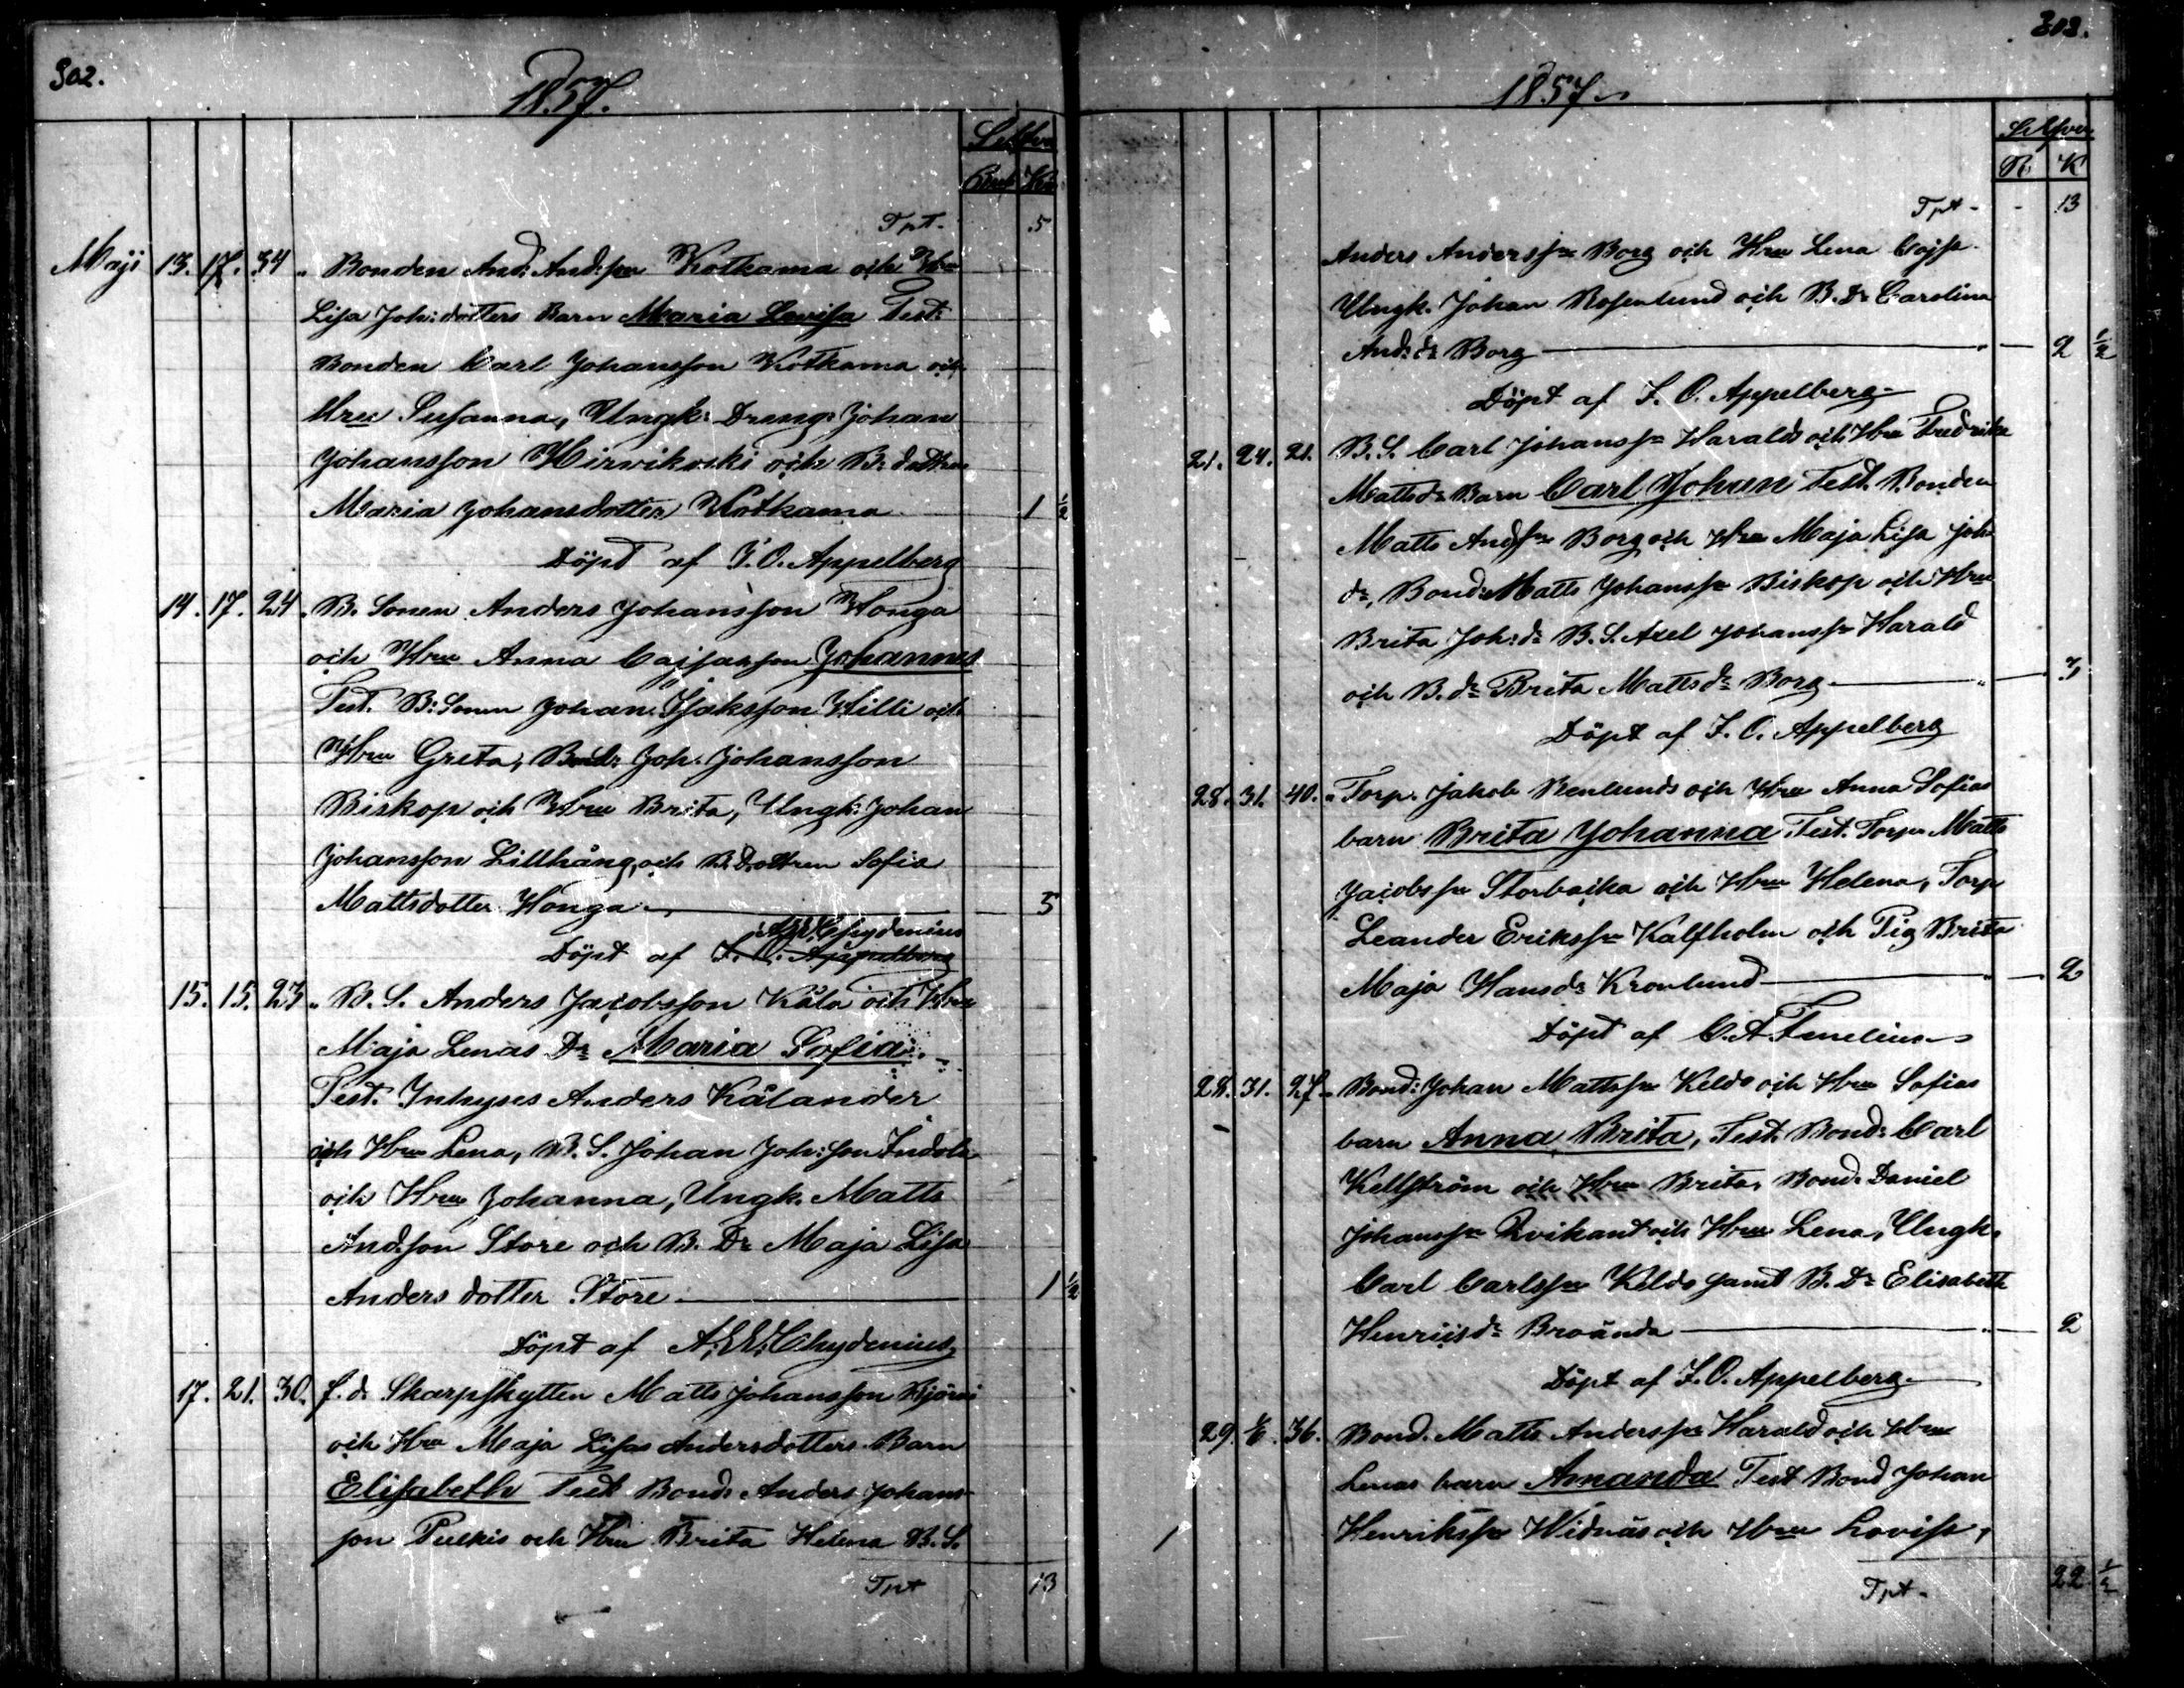 302.
1857.
Silfver
Rub Kop
Tpt. 5
Maji 13. 17. 34 Bonden And: And:son Kotkama och Hu
Lisa Joh: dotters Barn Maria Lovisa Test:
Bonden Carl Johansson Kotkama och
Hru Susanna, Ungk: Dreng: Johan
Johansson Hirvikoski och B: dottren
Maria Johansdotter Kotkama 1 1/2
Döpt af F. O. Appelberg
14. 17. 24. B. Sonen Anders Johansson Honga
och Hru Anna Cajsas son Johannes
Test. B: Sonen Johan Isaksson Hilli och
Hru Greta, Bond: Joh. Johansson
Biskop och Hru Brita, Ungk: Johan
Johansson Lillhång, och B. Dottren Sofia
Mattsdotter Honga 3
A. H. Chydenius
Döpt af F. O. Appelberg
15. 15. 23. B. S. Anders Jacobsson Kåla och Hru
Maja Lenas Dr Maria Sofia
Test. Inhyses Anders Kålander
och Hru Lena, B. S. Johan Joh: son Indola
och Hru Johanna, Ungk. Matts
And:son Store och B. Dr Maja Lisa
Anders dotter Store 1 1/2
Döpt af A. H. Chydenius
17. 21. 30. f. d. Skarpskytten Matts Johansson Björn
och Hru Maja Lisas Andersdotters Barn
Elisabeth Test Bond: Anders Johans-
son Pulkis och Hru Brita Helena B. S.
Tpt 13
303.
1857
Silfver
R. K
Tpt - - 13
Anders Anderssn Borg och Hru Lena Cajsa
Ungk. Johan Rosenlund och B. Dr Carolina
And: dr Borg 2 1/2
Döpt af F. O. Appelberg
21. 24. 21. B. S. Carl Johanssn Haralds och Hru Fredrika
Mattsdr Barn Carl Johan Test. Bonden
Matts Andssn Borg och Hru Maja Lisa Joh:
dr, Bond: Matts Johanssn Biskop och Hru
Brita Joh: dr B. S. Axel Johanssn Harald
och B. dr Brita Mattsdr Borg 3
Döpt af F. O. Appelberg
28. 31. 40. Torp. Jakob Renlunds och Hru Anna Sofias
barn Brita Johanna Test. Torp. Matts
Jacobssn Storbacka och Hru Helena, Torp
Leander Erikssn Kalfholm och Pig Brita
Maja Hansdr Kronlund 2
Döpt af C. A. Fenelius
28. 31. 27. Bond: Johan Mattssn Keldo och Hru Sofias
barn Anna Brita, Test. Bond: Carl
Kellström och Hru Brita, Bond. Daniel
Johanssn Qvikant och Hru Lena, Ungk.
Carl Carlssn Keldo samt B. Dr Elisabeth
Henricsdr Broända 2
Döpt af F. O. Appelberg
29. 1/6. 36. Bond. Matts Anderssn Harald och Hru
Lenas barn Amanda Test Bond Johan
Henrikssn Widnäs och Hru Lovisa,
Tpt - 22 1/2